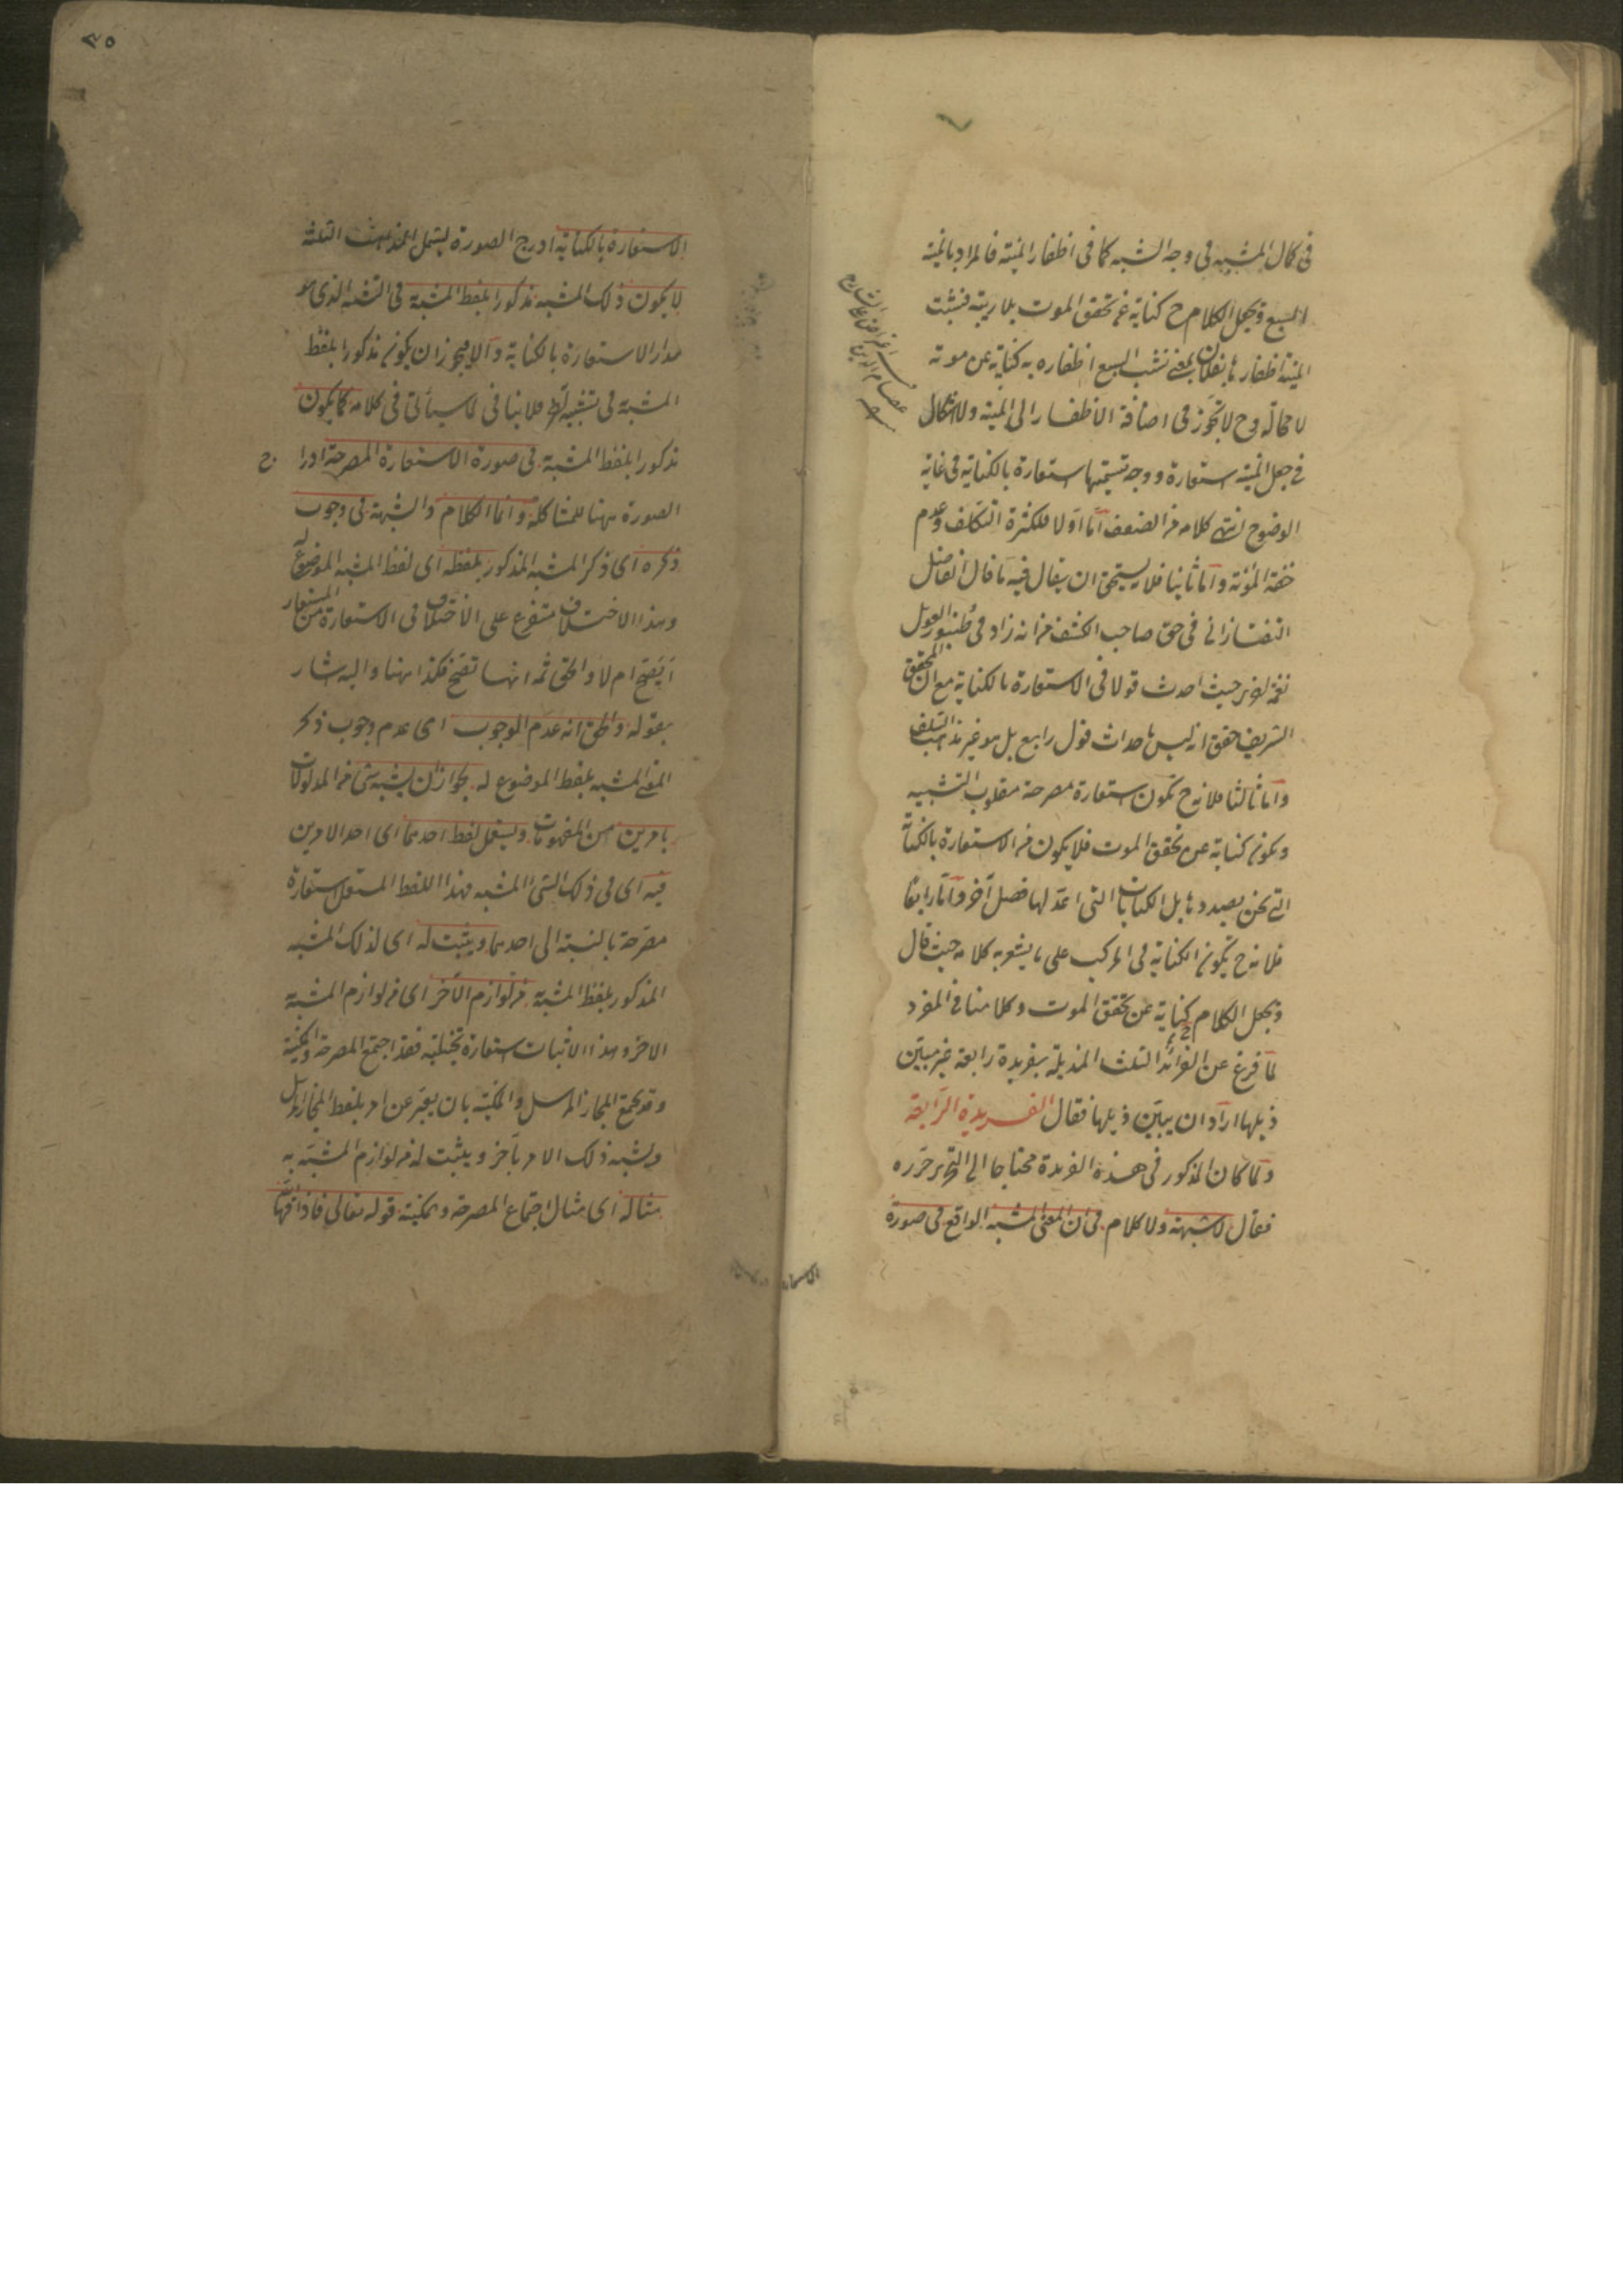 في كمال المشبه في وجه الشبه كما في اظفار المنية فالمراد بالمنية
السبع ويجعل الكلام ح كناية عن تحقق الموت بلا ريبة فنشبت
المنية اظفارها بفلان بمعنى نشب السبع اظفاره به كناية عن موته
لا محالة وح لا تجوز في اضافة الاظفار الى المنية ولا اشكال
في جعل المنية استعارة ووجه تسميتها استعارة بالكناية في غاية
الوضوح انتهى كلامه من الضعف اما اولا فلكثرة التكلف وعدم
خفة المؤنة واما ثانيا فلا يستحق ان يقال فيه ما قال الفاضل
التفتازاني في حق صاحب الكشف من انه زاد في طنبور القول
نغمة اخرى حيث احدث قولا في الاستعارة بالكناية مع ان المحقق
الشريف حقق انه ليس باحداث قول رابع بل هو غير مذاهب السلف
واما ثالثا فلانه ح تكون استعارة مصرحة مقلوب التشبيه
ويكون كناية عن تحقق الموت فلا يكون من الاستعارة بالكناية
التي نحن بصددها بل الكنايات التي اعد لها فصل آخر واما رابعا
فلانه ح يكون الكناية في المركب على ما يشعر به كلامه حيث قال
ويجعل الكلام كناية عن تحقق الموت وكلامنا في المفرد
لما فرغ عن الفرائد الثلث المذيلة بفريدة رابعة غير مبين
ذيلها اراد ان يبين ذيلها فقال الفريدة الرابعة
ولما كان المذكور في هذه الفريدة محتاجا الى التحرير حرره
فقال لا شبهة ولا كلام في ان المعنى المشبه الواقع في صورة
٣٥
الاستعارة بالكناية ادرج الصورة ليشمل المذاهب الثلثة
لا يكون ذلك المشبه مذكورا بلفظ المشبه به في التشبيه الذي هو
مدار الاستعارة بالكناية والا فيجوز ان يكون مذكورا بلفظ
المشبه به في تشبيه آخر فلا ينافي لما سيأتي في كلامه كما يكون
مذكورا بلفظ المشبه به في صورة الاستعارة المصرحة ادرا ج
الصورة ههنا للمشاكلة وانما الكلام والشبهة في وجوب
ذكره اى ذكر المشبه المذكور بلفظه اى لفظ المشبه الموضوع له
وهذا الاختلاف متفرع على الاختلاف في الاستعارة من المستعار
ايقبح ام لا والحق ثمه انها تقبح فكذا ههنا واليه اشار
بقوله والحق انه عدم الوجوب اى عدم وجوب ذكر
المعنى المشبه بلفظ الموضوع له بجواز ان يشبه شئ من المدلولات
بامرين من المفهومات ويستعمل لفظ احدهما اى احد الامرين
فيه اى في ذلك الشئ المشبه فهذا اللفظ المستعمل استعارة
مصرحة بالنسبة الى احدهما ويثبت له اى لذلك المشبه
المذكور بلفظ المشبه به من لوازم الآخر اى من لوازم المشبه به
الاخر وهذا الاثبات استعارة تخييلية فقد اجتمع المصرحة والمكنية
وقد يجمع المجاز المرسل والمكنية بان يعبر عن امر بلفظ المجاز المرسل
ويشبه ذلك الامر بآخر ويثبت له من لوازم المشبه به
مثاله اى مثال اجتماع المصرحة والمكنية قوله تعالى فاذاقها الله